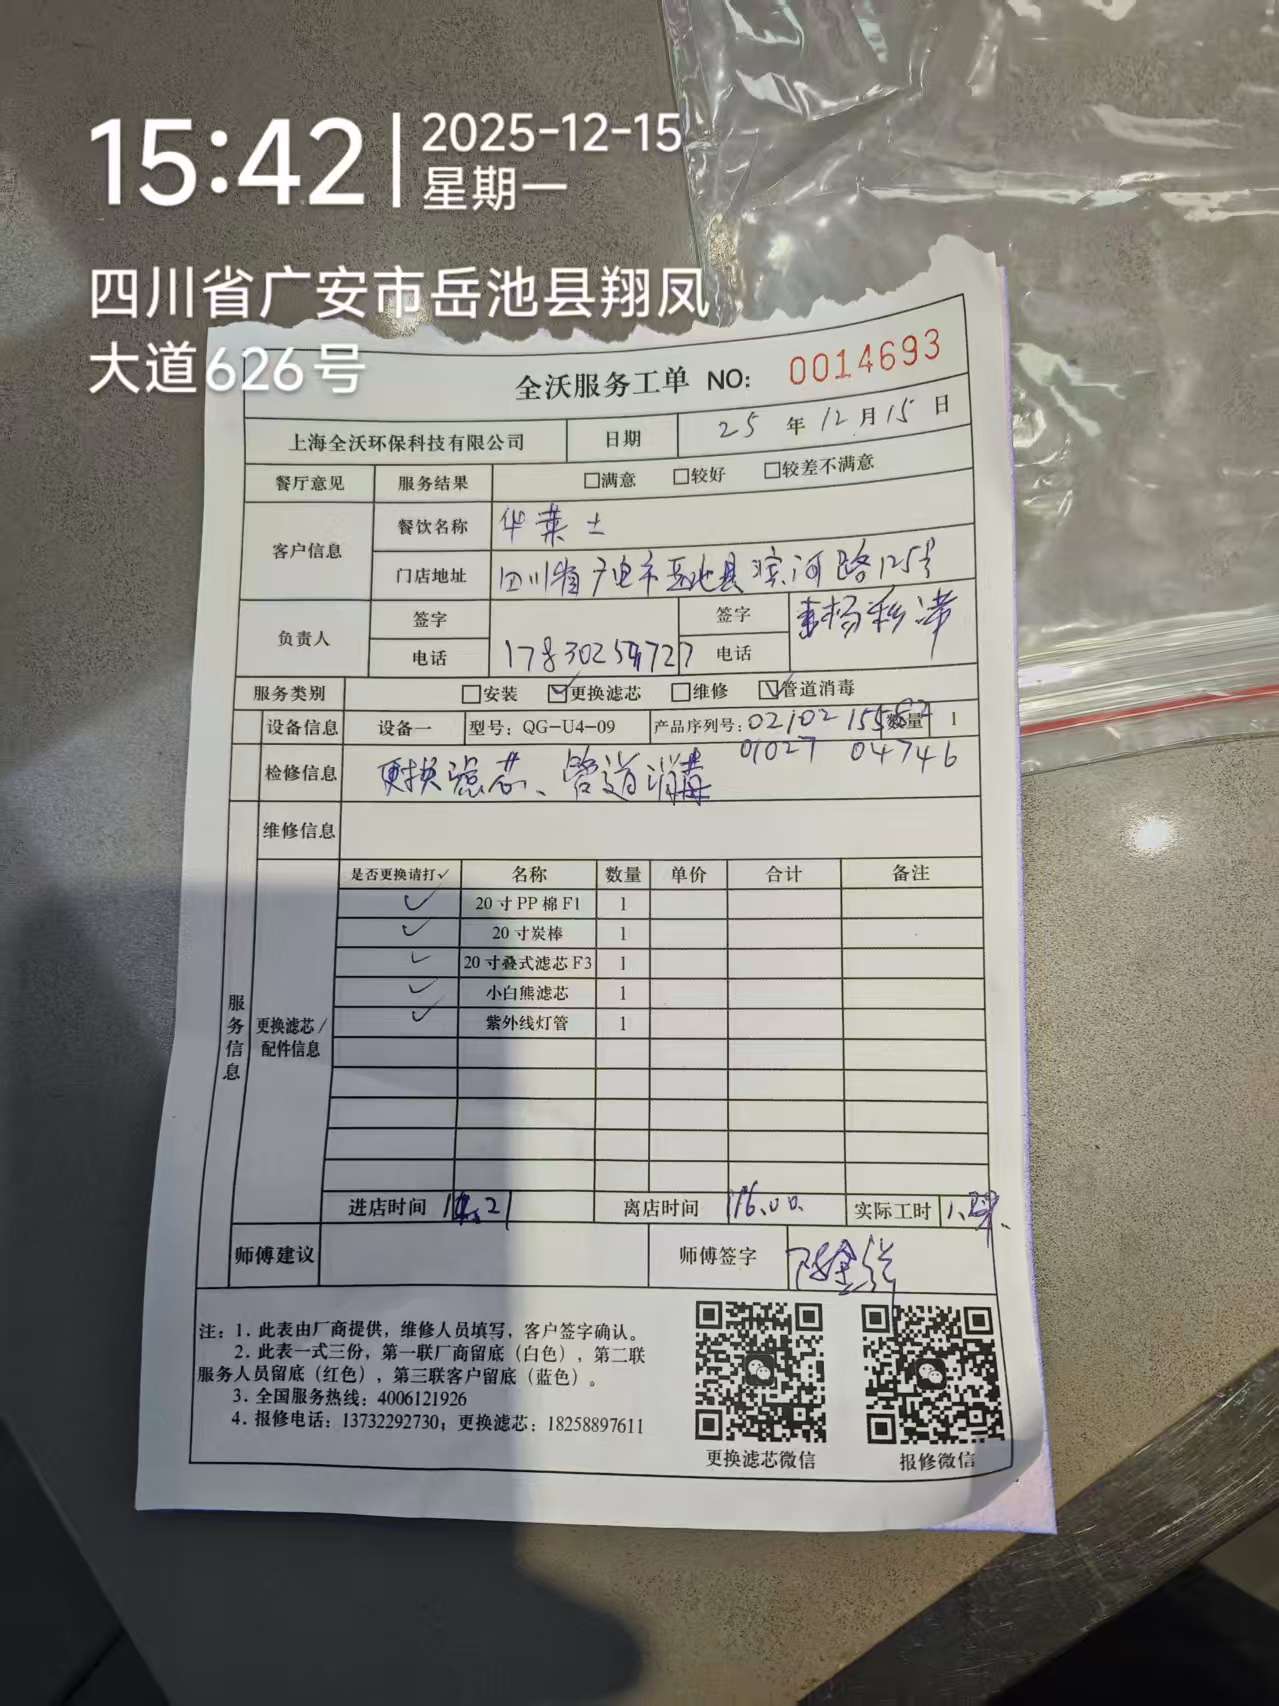 15:42
2025-12-15
星期一
四川省广安市岳池县翔凤
大道626号
全沃服务工单 NO: 0014693
上海全沃环保科技有限公司 日期 25 年 12 月 15 日
餐厅意见 服务结果 □满意 □较好 □较差不满意
客户信息 餐饮名称 华莱士
门店地址 四川省广安市岳池县滨河路125号
负责人 签字 签字
电话 电话
服务类别 □安装 ☑更换滤芯 □维修 ☑管道消毒
设备信息 设备一 型号：QG-U4-09 产品序列号： 数量 1
01027 04746
检修信息 更换滤芯、管道消毒
维修信息
服务信息
更换滤芯/
配件信息
是否更换请打✓ 名称 数量 单价 合计 备注
✓ 20寸PP棉F1 1
✓ 20寸炭棒 1
✓ 20寸叠式滤芯F3 1
✓ 小白熊滤芯 1
✓ 紫外线灯管 1
进店时间 离店时间 16.00. 实际工时
师傅建议 师傅签字
注：1. 此表由厂商提供，维修人员填写，客户签字确认。
2. 此表一式三份，第一联厂商留底（白色），第二联
服务人员留底（红色），第三联客户留底（蓝色）。
3. 全国服务热线：4006121926
4. 报修电话：13732292730；更换滤芯：18258897611
更换滤芯微信 报修微信